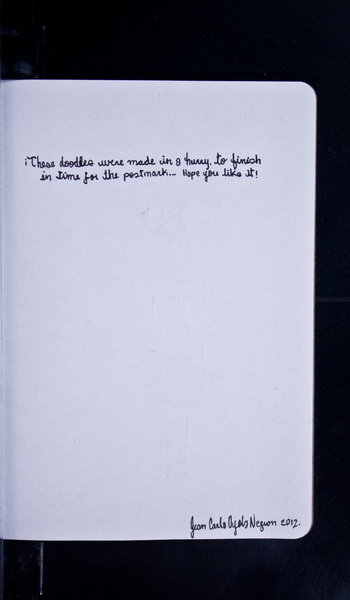 ¡These doodles were made in a hurry, to finish
in time for the postmark... Hope you like it!
Jean Carlo Negron 2012.